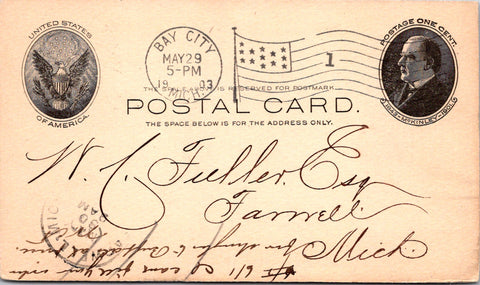 UNITED STATES
OF AMERICA.
BAY CITY
MAY 29
5-PM
19 03
MICH.
1
POSTAGE ONE CENT.
1843-McKINLEY-1901.
THE SPACE ABOVE IS RESERVED FOR POSTMARK.
POSTAL CARD.
THE SPACE BELOW IS FOR THE ADDRESS ONLY.
W. C. Fuller, Esq
Farwell
Mich.
MICH
30
AM
can fill your order